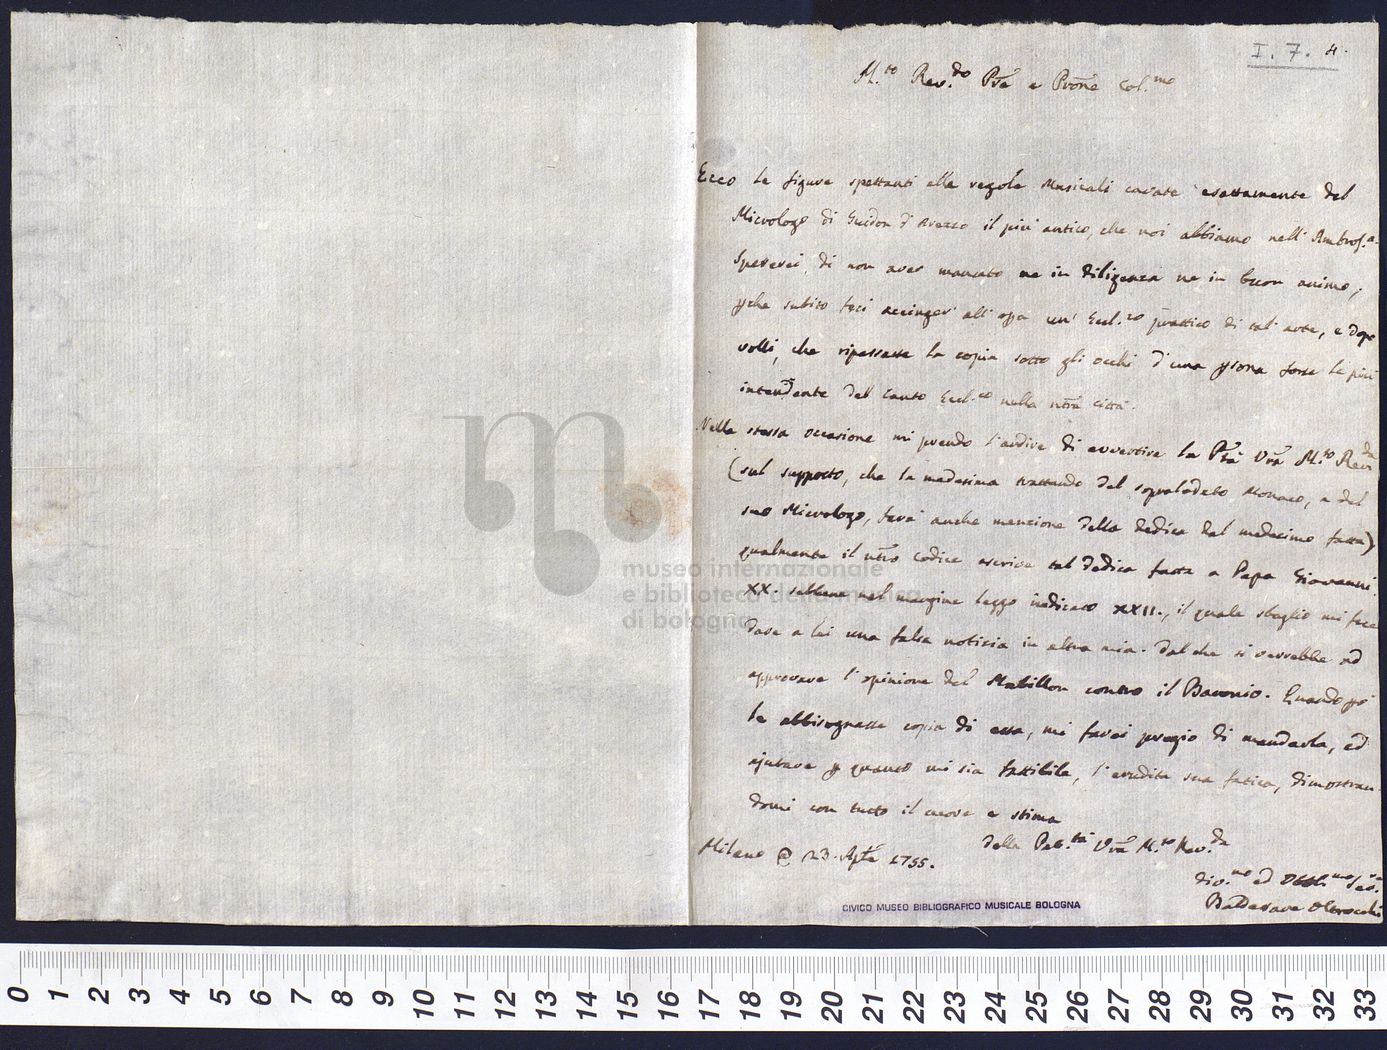 I. 7. 4.
M.to Rev.do Pre e Prone Col.mo
Ecco le figure spettanti alle regole Musicali cavate esattamente del
Micrologo di Guidon d'Arezzo il più antico, che noi abbiamo nell'Ambros.a.
Spererei di non aver mancato ne in diligenza ne in buon animo,
pche subito feci accinger all'opa un' Eccl.co prattico di tal arte, e dopo
volli, che ripassasse la copia sotto gli occhi d'una psona forse la più
intendente del Canto Eccl.co nella nrã città.
Nella stessa occasione mi prendo l'ardire di avvertire la Ptà Vrã M.to Rev.da
(sul supposto, che la medesima trattando del sopralodato Monaco, e del
suo Micrologo, farà anche menzione della dedica del medesimo fatta)
qualmente il nrõ codice ascrive tal dedica fatta a Papa Giovanni
XX. sebbene nel margine leggo indicato XXII., il quale sbaglio mi fece
dare a lei una falsa notizia in altra mia. Dal che si verrebbe ad
approvare l'opinione del Mabillon contro il Baronio. Quando poi
le abbisognasse copia di essa, mi farei pregio di mandarla, ed
ajutare p quanto mi sia fattibile, l'erudita sua fatica, dimostran-
domi con tutto il cuore e stima
Della Pat.tà Vrã M.to Rev.da
Milano @ 23. 1755.
Div.mo ed Obbl.mo
Baldassare Oltrocchi
CIVICO MUSEO BIBLIOGRAFICO MUSICALE BOLOGNA
museo internazionale
e biblioteca della musica
di bologna
0 1 2 3 4 5 6 7 8 9 10 11 12 13 14 15 16 17 18 19 20 21 22 23 24 25 26 27 28 29 30 31 32 33